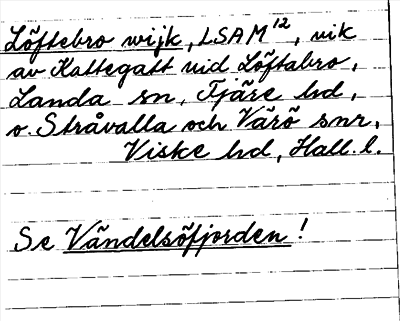 Löftebro wijk, LSAM¹², vik
av Kattegatt vid Löftabro,
Landa sn, Fjäre hd,
o. Stråvalla och Värö snr,
Viske hd, Hall. l.
Se Vändelsöfjorden!